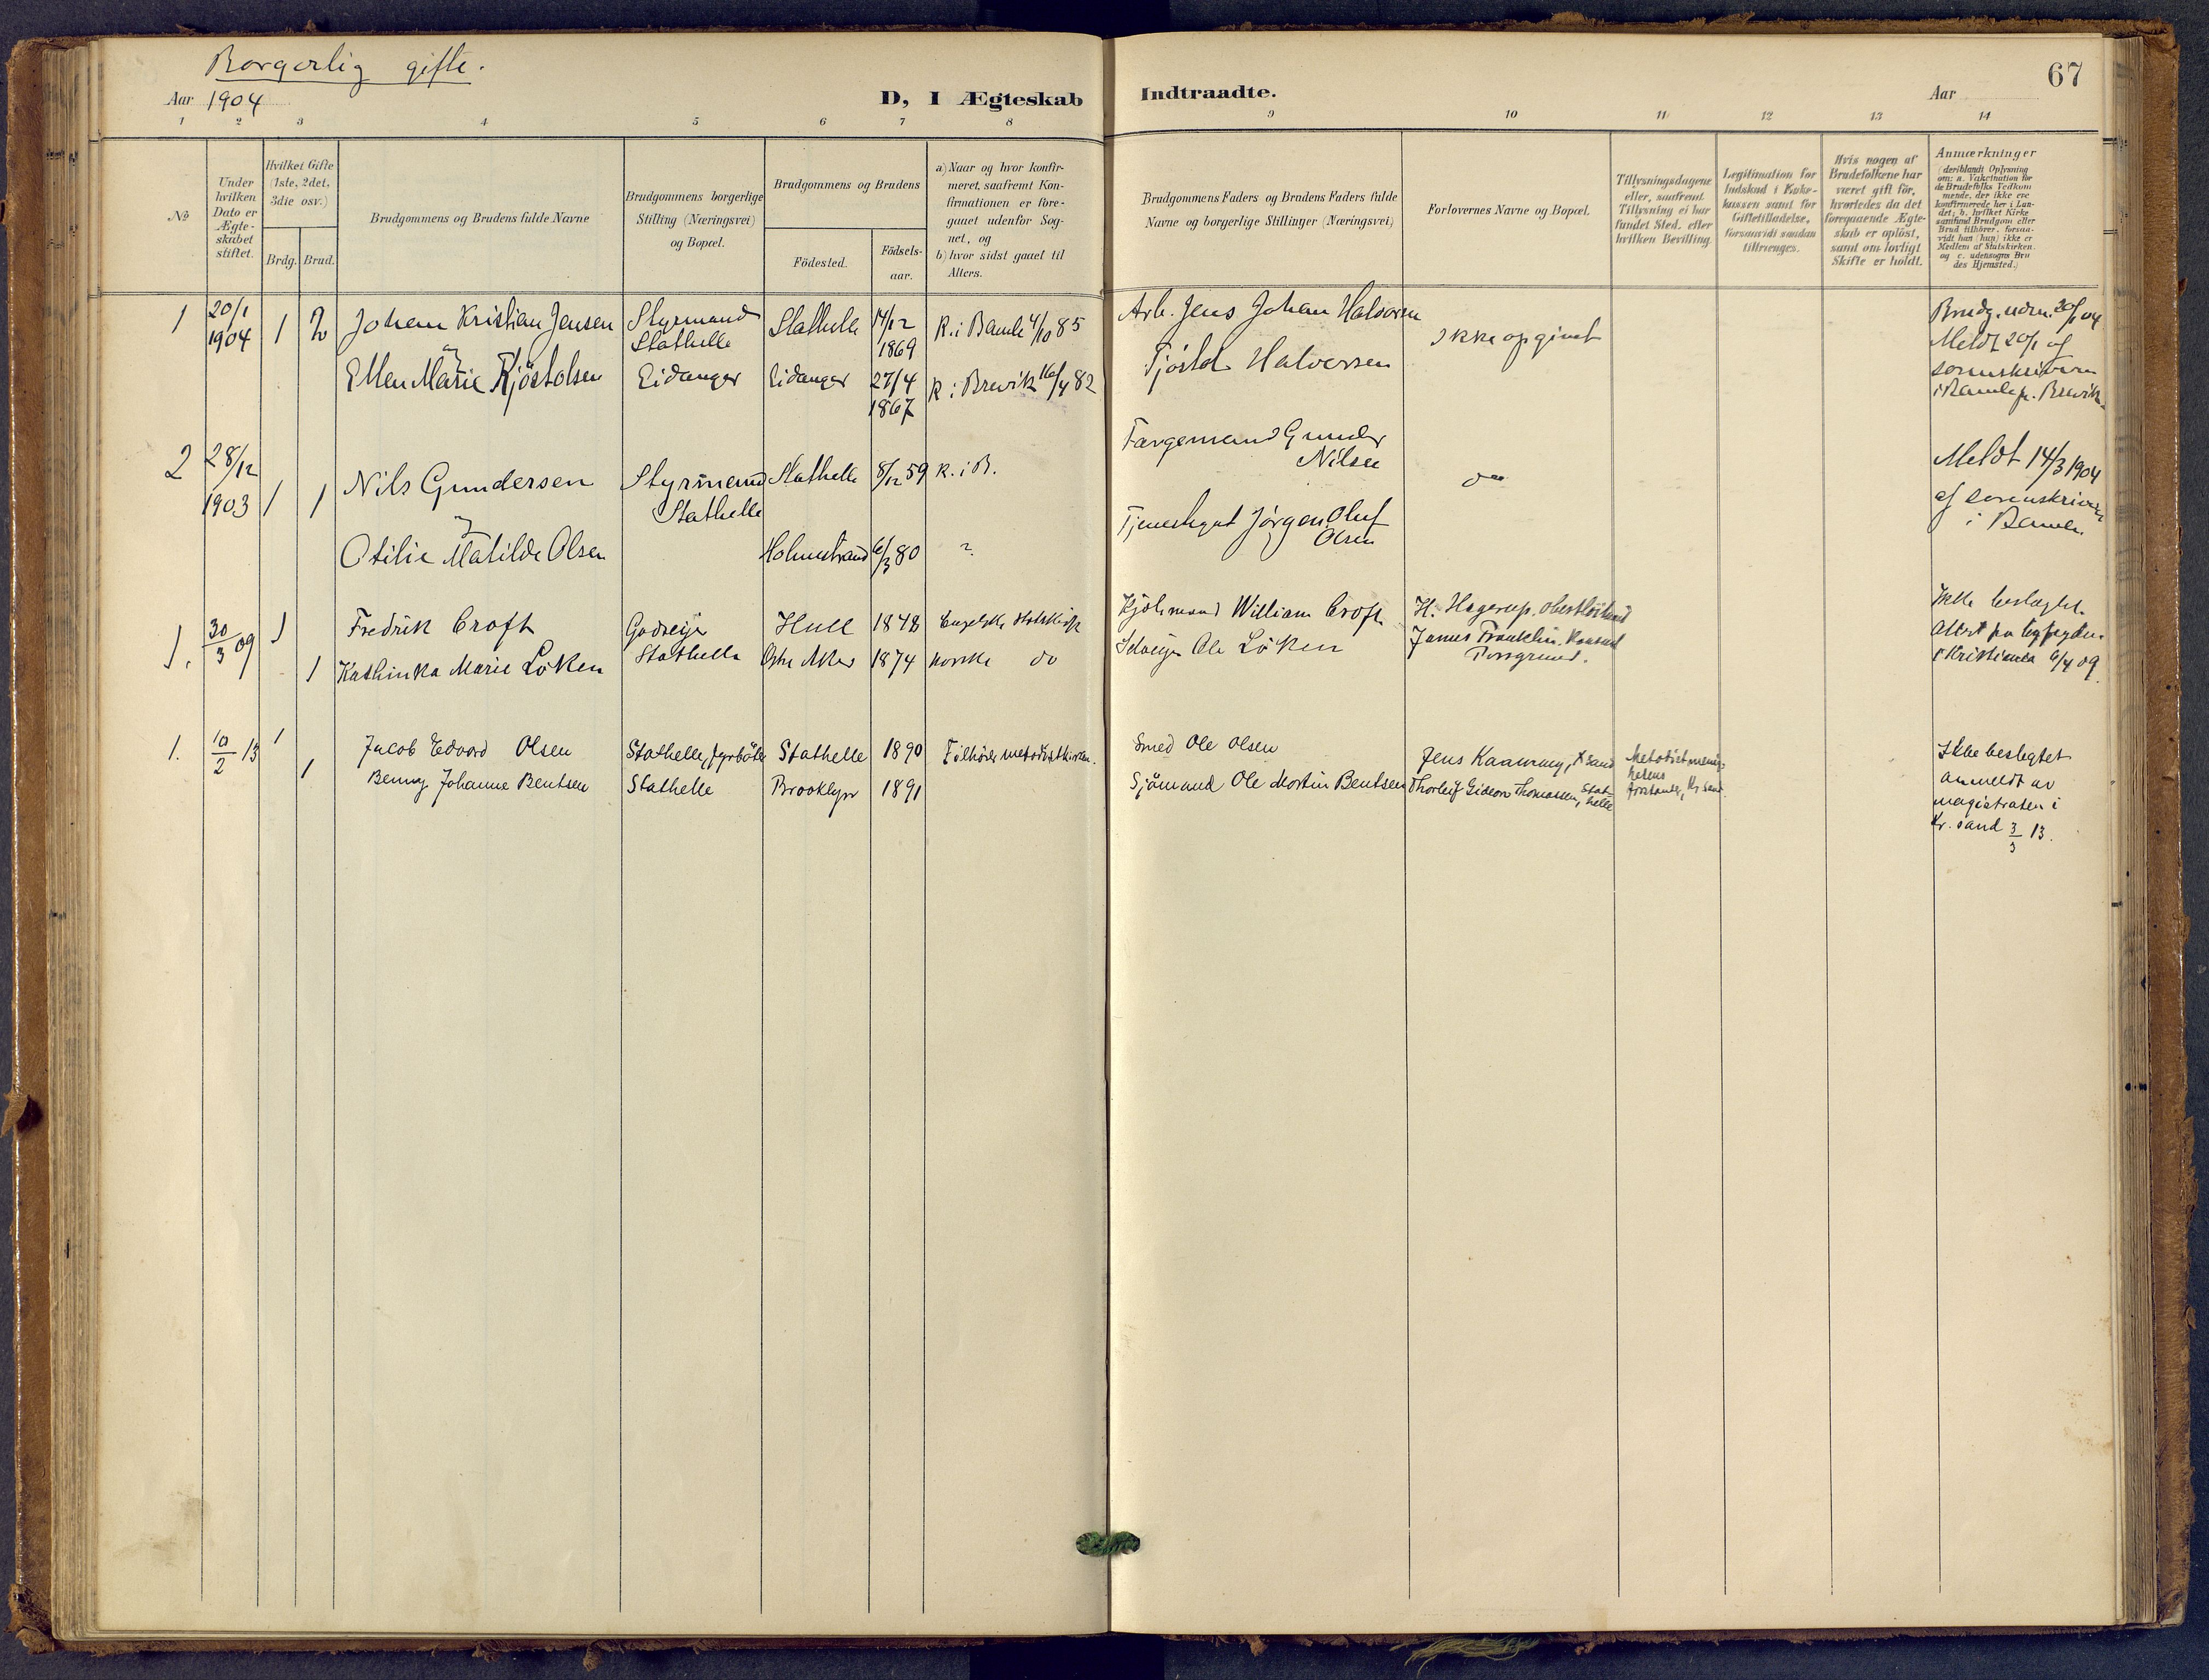 Borgerlig gifte.
Aar 1904
D, I Ægteskab Indtraadte.
Aar
67
1 2 3 4 5 6 7 8 9 10 11 12 13 14
No
Under hvilken Dato er Ægte-skabet stiftet.
Hvilket Gifte (1ste, 2det, 3die osv.)
Brdg. Brud.
Brudgommens og Brudens fulde Navne
Brudgommens borgerlige Stilling (Næringsvei) og Bopæl.
Brudgommens og Brudens
Födested.
Födsels-aar.
a) Naar og hvor konfir-meret, saafremt Kon-firmationen er fore-gaaet udenfor Sog-net, og
b) hvor sidst gaaet til Alters.
Brudgommens Faders og Brudens Faders fulde Navne og borgerlige Stillinger (Næringsvei)
Forlovernes Navne og Bopæl.
Tillysningsdagene eller, saafremt Tillysning ei har fundet Sted, efter hvilken Bevilling
Legitimation for Indskud i Enke-kassen samt for Giftetilladelse, forsaavidt saadan tiltrænges.
Hvis nogen af Brudefolkene har været gift för, hvorledes da det foregaaende Ægte-skab er oplöst, samt om lovligt Skifte er holdt.
Anmærkninger
(deriblandt Oplysning om: a. Vakcination for de Brudefolks Vedkom mende, der ikke ere konfirmerede her i Lan-det; b. hvilket Kirke samfund Brudgom eller Brud tilhörer, forsaa-vidt han (hun) ikke er Medlem af Statskirken. og c. udensogns Bru des Hjemsted.)
1 20/1 1904 1 2 Johan Kristian Jensen Styrmand Stathelle Stathelle 14/12 1869 K. i Bamle 4/10 85 Arb. Jens Johan Halvorsen Ikke opgivet
Ellen Marie Kjöstolsen Eidanger Eidanger 27/4 1867 K. i Brevik 16/4 82 Tjöstol Halvorsen
Meldt 20/1 af
sorenskriveren
i Bamle p. Brevik.
2 28/12 1903 1 1 Nils Gundersen Styrmand Stathelle Stathelle 8/12 59 K. i B. Færgemand Gunder Nilsen do
Otilie Matilde Olsen Holmestrand 6/3 80 ? Jørgen Oluf Olsen
Meldt 14/3 1904
af sorenskriver
i Bamle.
1. 30/3 09 1 Fredrik Croft Godseier Stathelle Hull 1848 Engelske Statskirke William Croft H. Hagerup,
1 Kathinka Marie Löken Östre Aker 1874 norske do Selveier Ole Löken James Franklin, Konsul Porsgrund.
Ikke beslægtet.
Kristiania 6/4 09.
1. 10/2 13 1 Jacob Edvard Olsen Stathelle, fyrböter Stathelle 1890 Tilhörer metodistkirken. Smed Ole Olsen Jens Kaanrmy, Kr sand Metodistmenig-hetens forstander, Kr sand
1 Benny Johanne Bentsen Stathelle Brooklyn 1891 Sjömand Ole Martin Bentsen Thorleif Gideon Thomassen, Stat-helle
Ikke beslegtet
anmeldt av
magistraten i
Kr. sand 3/3 13.